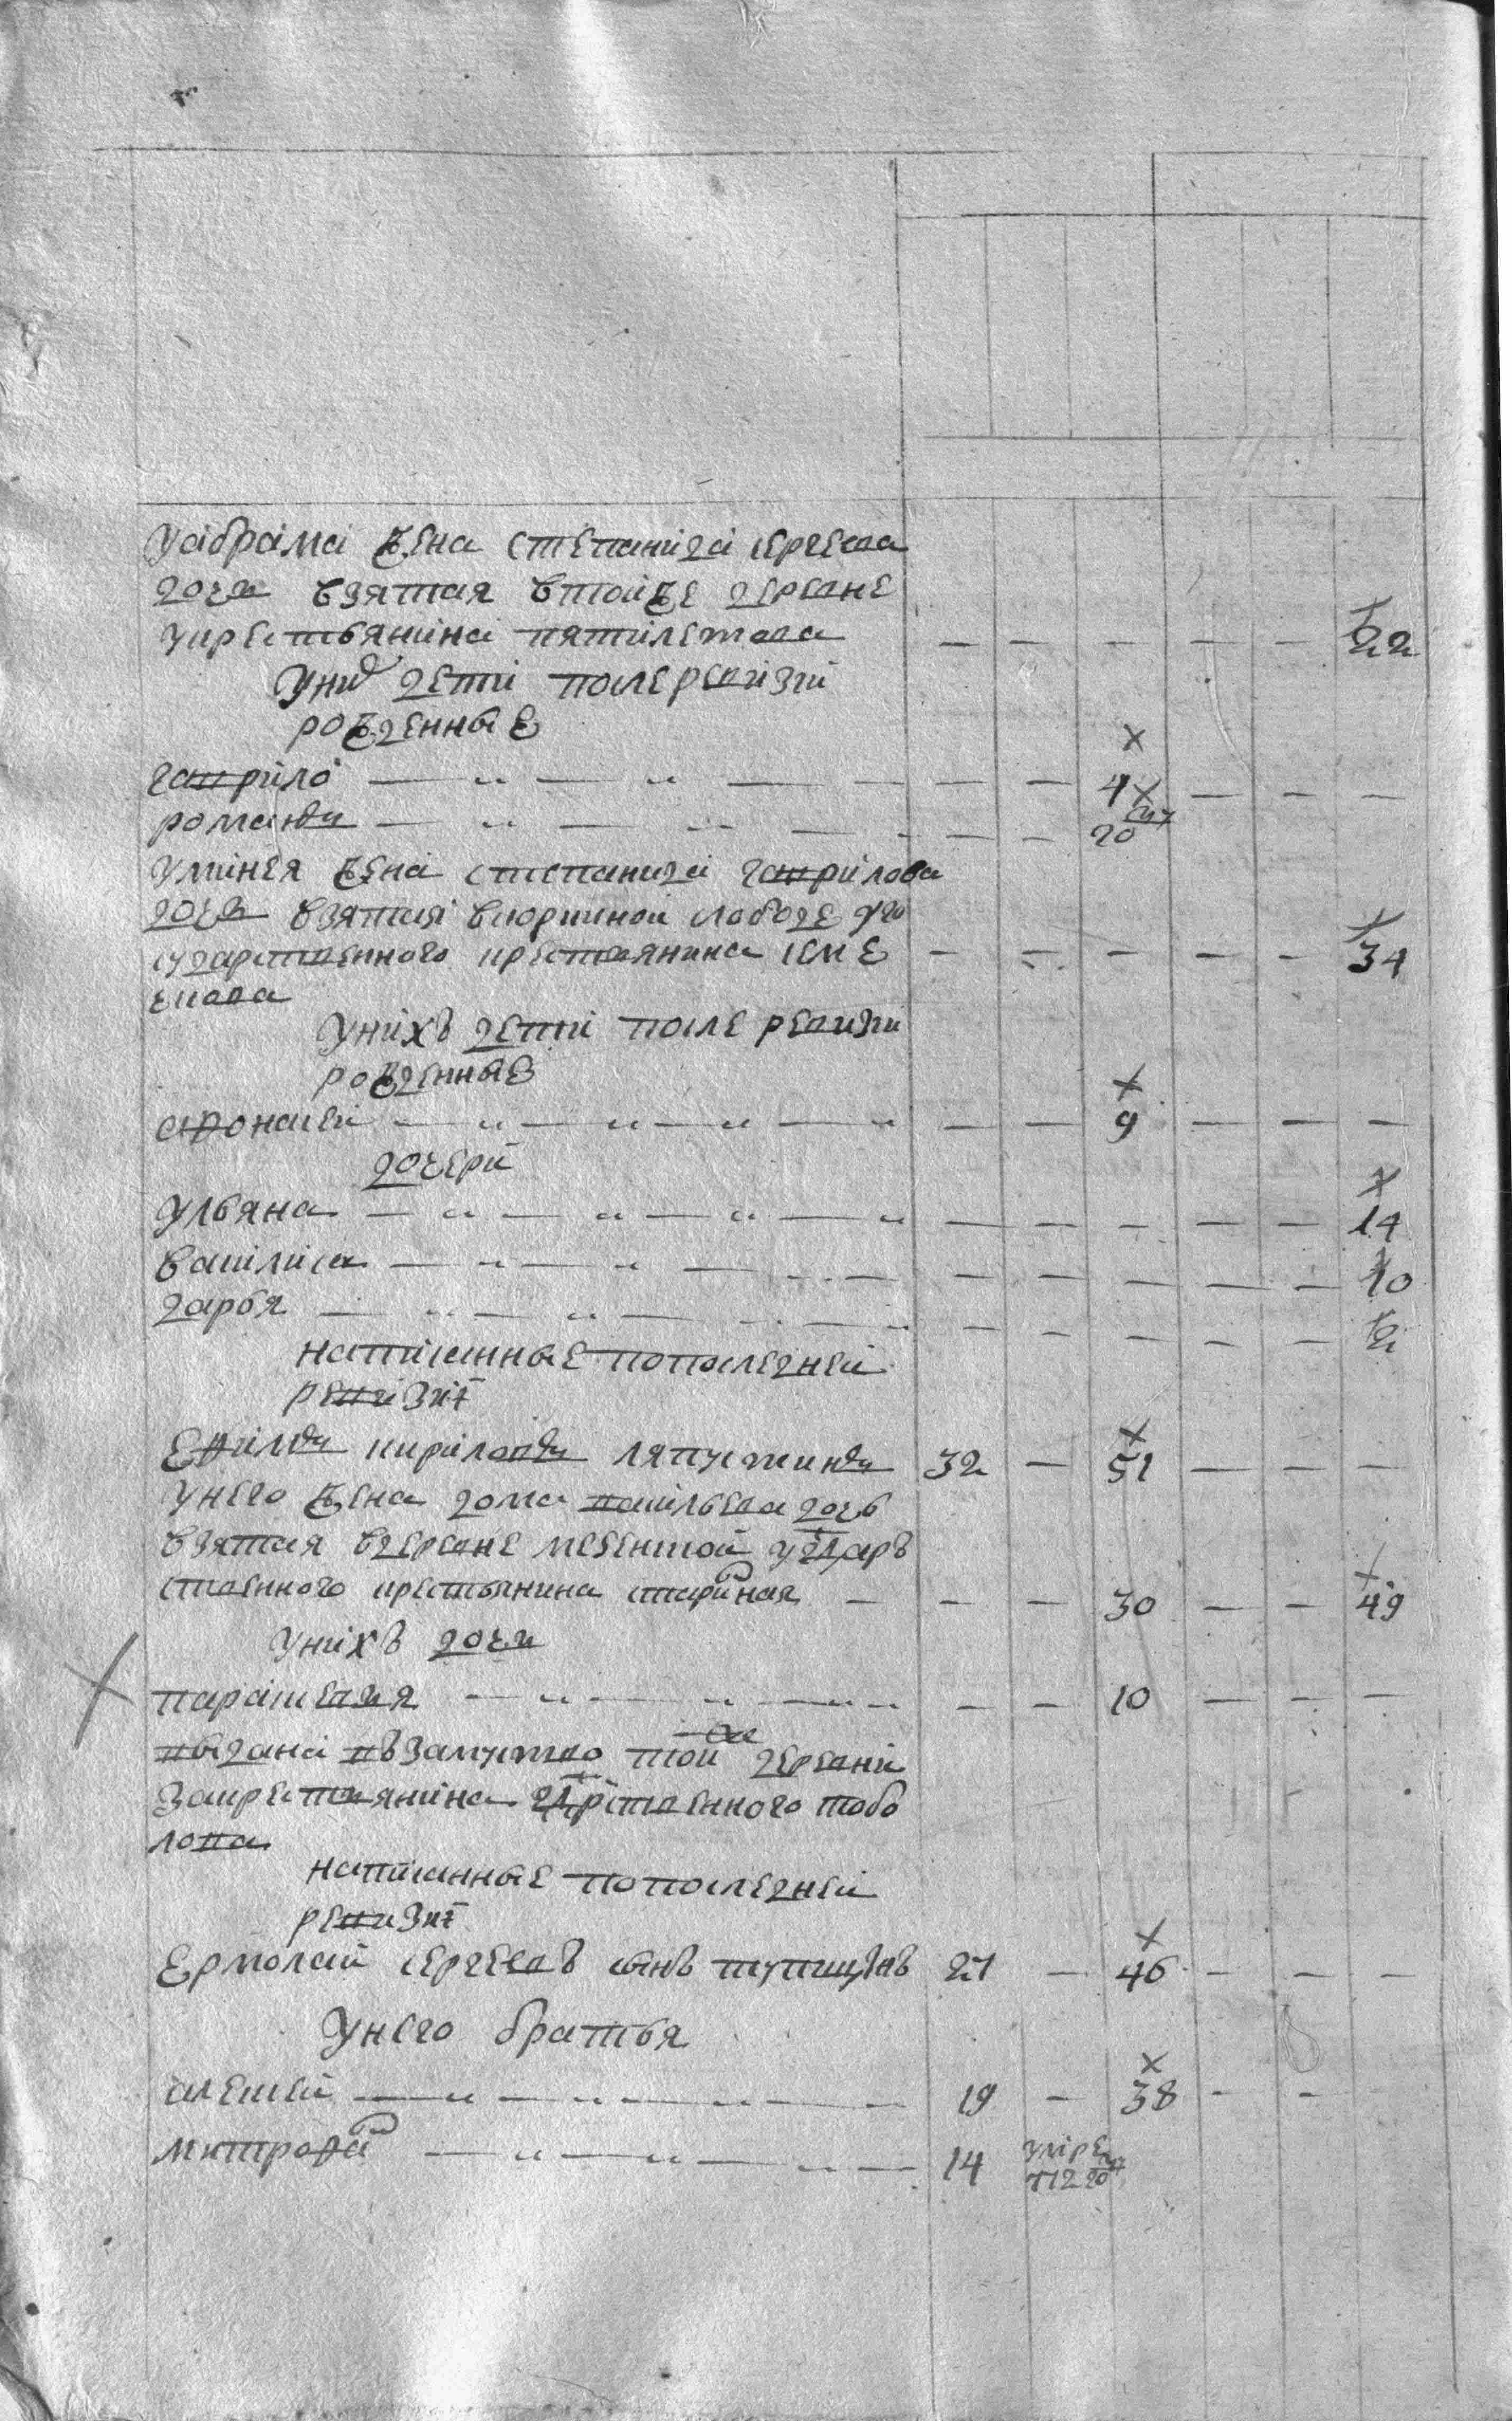 уабрама жена степанида сергеева
дочи взятая втойже деревне
укрестьянина пятилетова — — — — — 22
уних дети после ревизии
рожденные
гаврило — — — 4 — — —
романъ — — — 20
уминея жена степанида гаврилова
дочи взятая вкоркиной слободе уго
сударственного крестьянина семе
нова — — — — — 34
унихъ дети после ревизии
рожденные
афонасеи — — — 9 — — —
дочери
ульяна — — — — — 14
василиса — — — — — 10
дарья — — — — — 2
написанные попоследней
ревизиї
Еѳимъ кириловъ ляпустинъ 32 — 51 — — —
унего жена дома васильева дочь
взятая вдеревне угдаръ
ственного крестьянина — — — 30 — — 49
унихъ дочи
парасковия — — — 10 — — —
выдана взамуство тойже деревни
закрестьянина гдрственного тобо
лова
написанные попоследней
ревизиї
Ермолай сергеевъ сынъ тупицынъ 27 — 46 — — —
унего братья
алексей — 19 — 38 — —
митрофаї — 14 умре